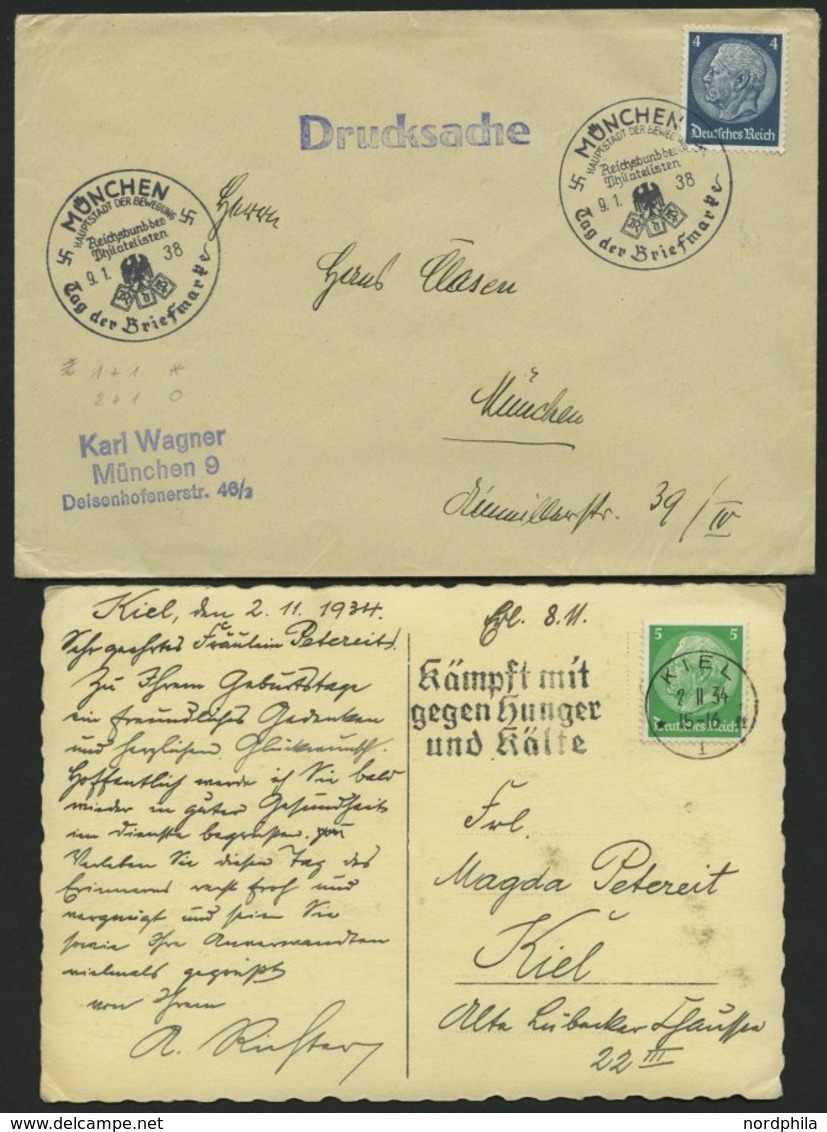 Drucksache
4 4
Deutsches Reich
MÜNCHEN
HAUPTSTADT DER BEWEGUNG
Reichsbund der
Philatelisten
9.1. 38
R d P
Tag der Briefmarke
MÜNCHEN
HAUPTSTADT DER BEWEGUNG
Reichsbund der
Philatelisten
9.1. 38
R d P
Tag der Briefmarke
Herrn
Hans Clasen
München
39/IV
1+1 *
2+1 O
Karl Wagner
München 9
Deisenhofenerstr. 46/2
Kiel, den 2.11.1934.
Sehr geehrtes Fräulein Petereit!
Zu Ihrem Geburtstage
ein freundliches Gedenken
und herzlichen Glückwunsch.
Hoffentlich werde ich Sie bald
wieder in guter Gesundheit
im Dienste begrüßen.
Verleben Sie diesen Tag des
Erinnerns recht froh und
vergnügt und seien Sie
sowie Ihre Anverwandten
vielmals gegrüßt
von Ihrem
A. Richter
8.11.
Kämpft mit
gegen Hunger
und Kälte
5 5
Deutsches Reich
KIEL
2 11 34
15-16
1
Frl.
Magda Petereit
Kiel
Alte Lübecker Chaussee
22 III
nordphila.com